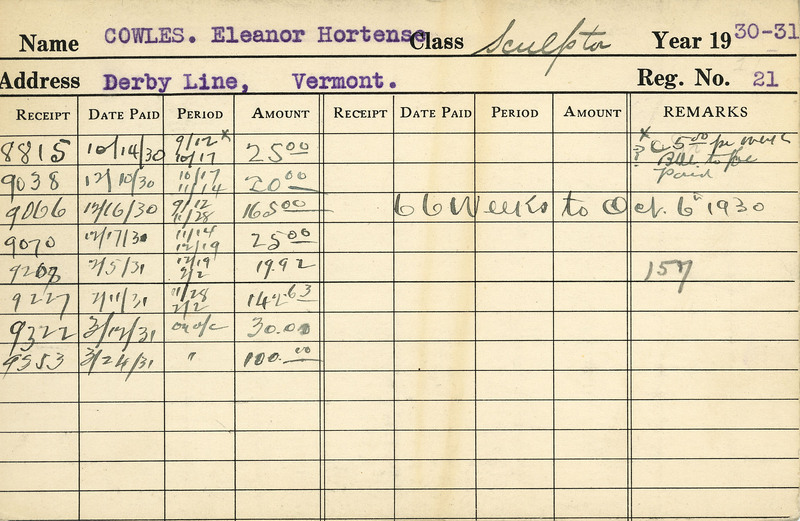 Name COWLES. Eleanor Hortense Class Sculptor Year 19 30-31
Address Derby Line, Vermont. Reg. No. 21
RECEIPT DATE PAID PERIOD AMOUNT RECEIPT DATE PAID PERIOD AMOUNT REMARKS
8815 10/14/30 9/12 x 10/17 25 00 x @ 5 00 per week
9038 12/10/30 10/17 11/14 20 00 Bal. to be paid
9066 12/16/30 9/12 11/28 165 00 66 Weeks to Oct. 6 1930
9070 12/17/30 11/14 12/19 25 00
9208 2/5/31 12/19 2/2 19.92 157
9227 2/11/31 11/28 2/2 142.63
9322 3/12/31 on a/c 30.00
9353 3/24/31 " 100.00